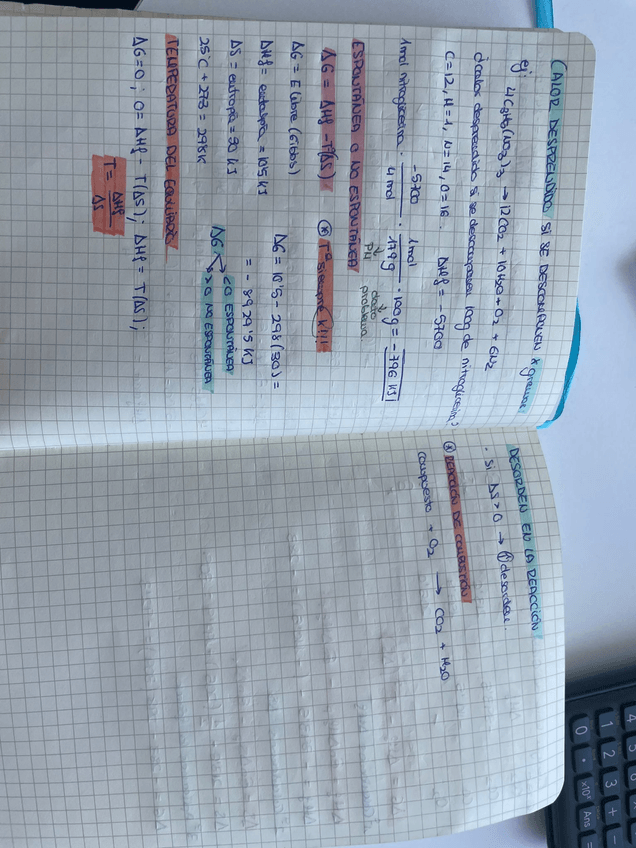 CALOR DESPRENDIDO SI SE DESCOMPONEN X gramos
ej: 4C3H5(NO3)3 → 12CO2 + 10H2O + O2 + 6N2
¿calor desprendido si se descomponen 100g de nitroglicerina?
C=12, H=1, N=14, O=16. ΔHf = -5700
1mol nitroglicerina · -5700 / 4mol · 1mol / 179g · 100g = -796 KJ
PM dato problema
ESPONTÁNEA O NO ESPONTÁNEA
ΔG = ΔHf - Tª(ΔS) * Tª siempre K!!!
ΔG = E libre (Gibbs)
ΔHf = entalpía = 10'5 KJ
ΔS = entropía = 30 KJ
25°C + 273 = 298K
ΔG = 10'5 - 298(30) =
= -8929'5 KJ
ΔG <0 ESPONTÁNEA
>0 NO ESPONTÁNEA
TEMPERATURA DEL EQUILIBRIO
ΔG=0; 0= ΔHf - T(ΔS); ΔHf = T(ΔS);
T = ΔHf / ΔS
DESORDEN EN LA REACCIÓN
· Si ΔS>0 → ↑ desorden.
* REACCIÓN DE COMBUSTIÓN
compuesto + O2 → CO2 + H2O
4 5
1 2 3 + -
0 · ×10ˣ Ans =